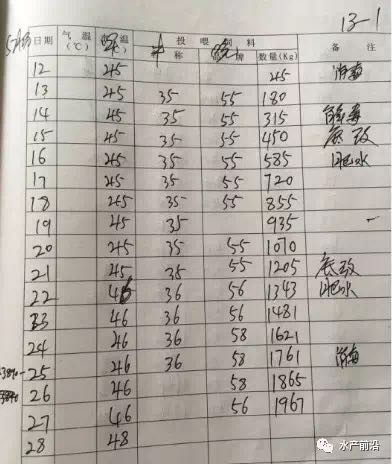 13-1
日期 气温 温 投喂饲料 备注
(℃) 称 牌 数量(Kg)
12 45 45 消毒
13 45 35 55 180
14 45 35 55 315 解毒
15 45 35 55 450 底改
16 45 35 55 585 肥水
17 45 35 55 720
18 45 35 55 855
19 45 35 935
20 45 35 55 1070
21 45 35 55 1205 底改
22 46 36 56 1343 肥水
23 46 36 56 1481
24 46 36 58 1621
25 46 36 58 1761 消毒
26 46 58 1865
27 46 56 1967
28 48
水产前沿